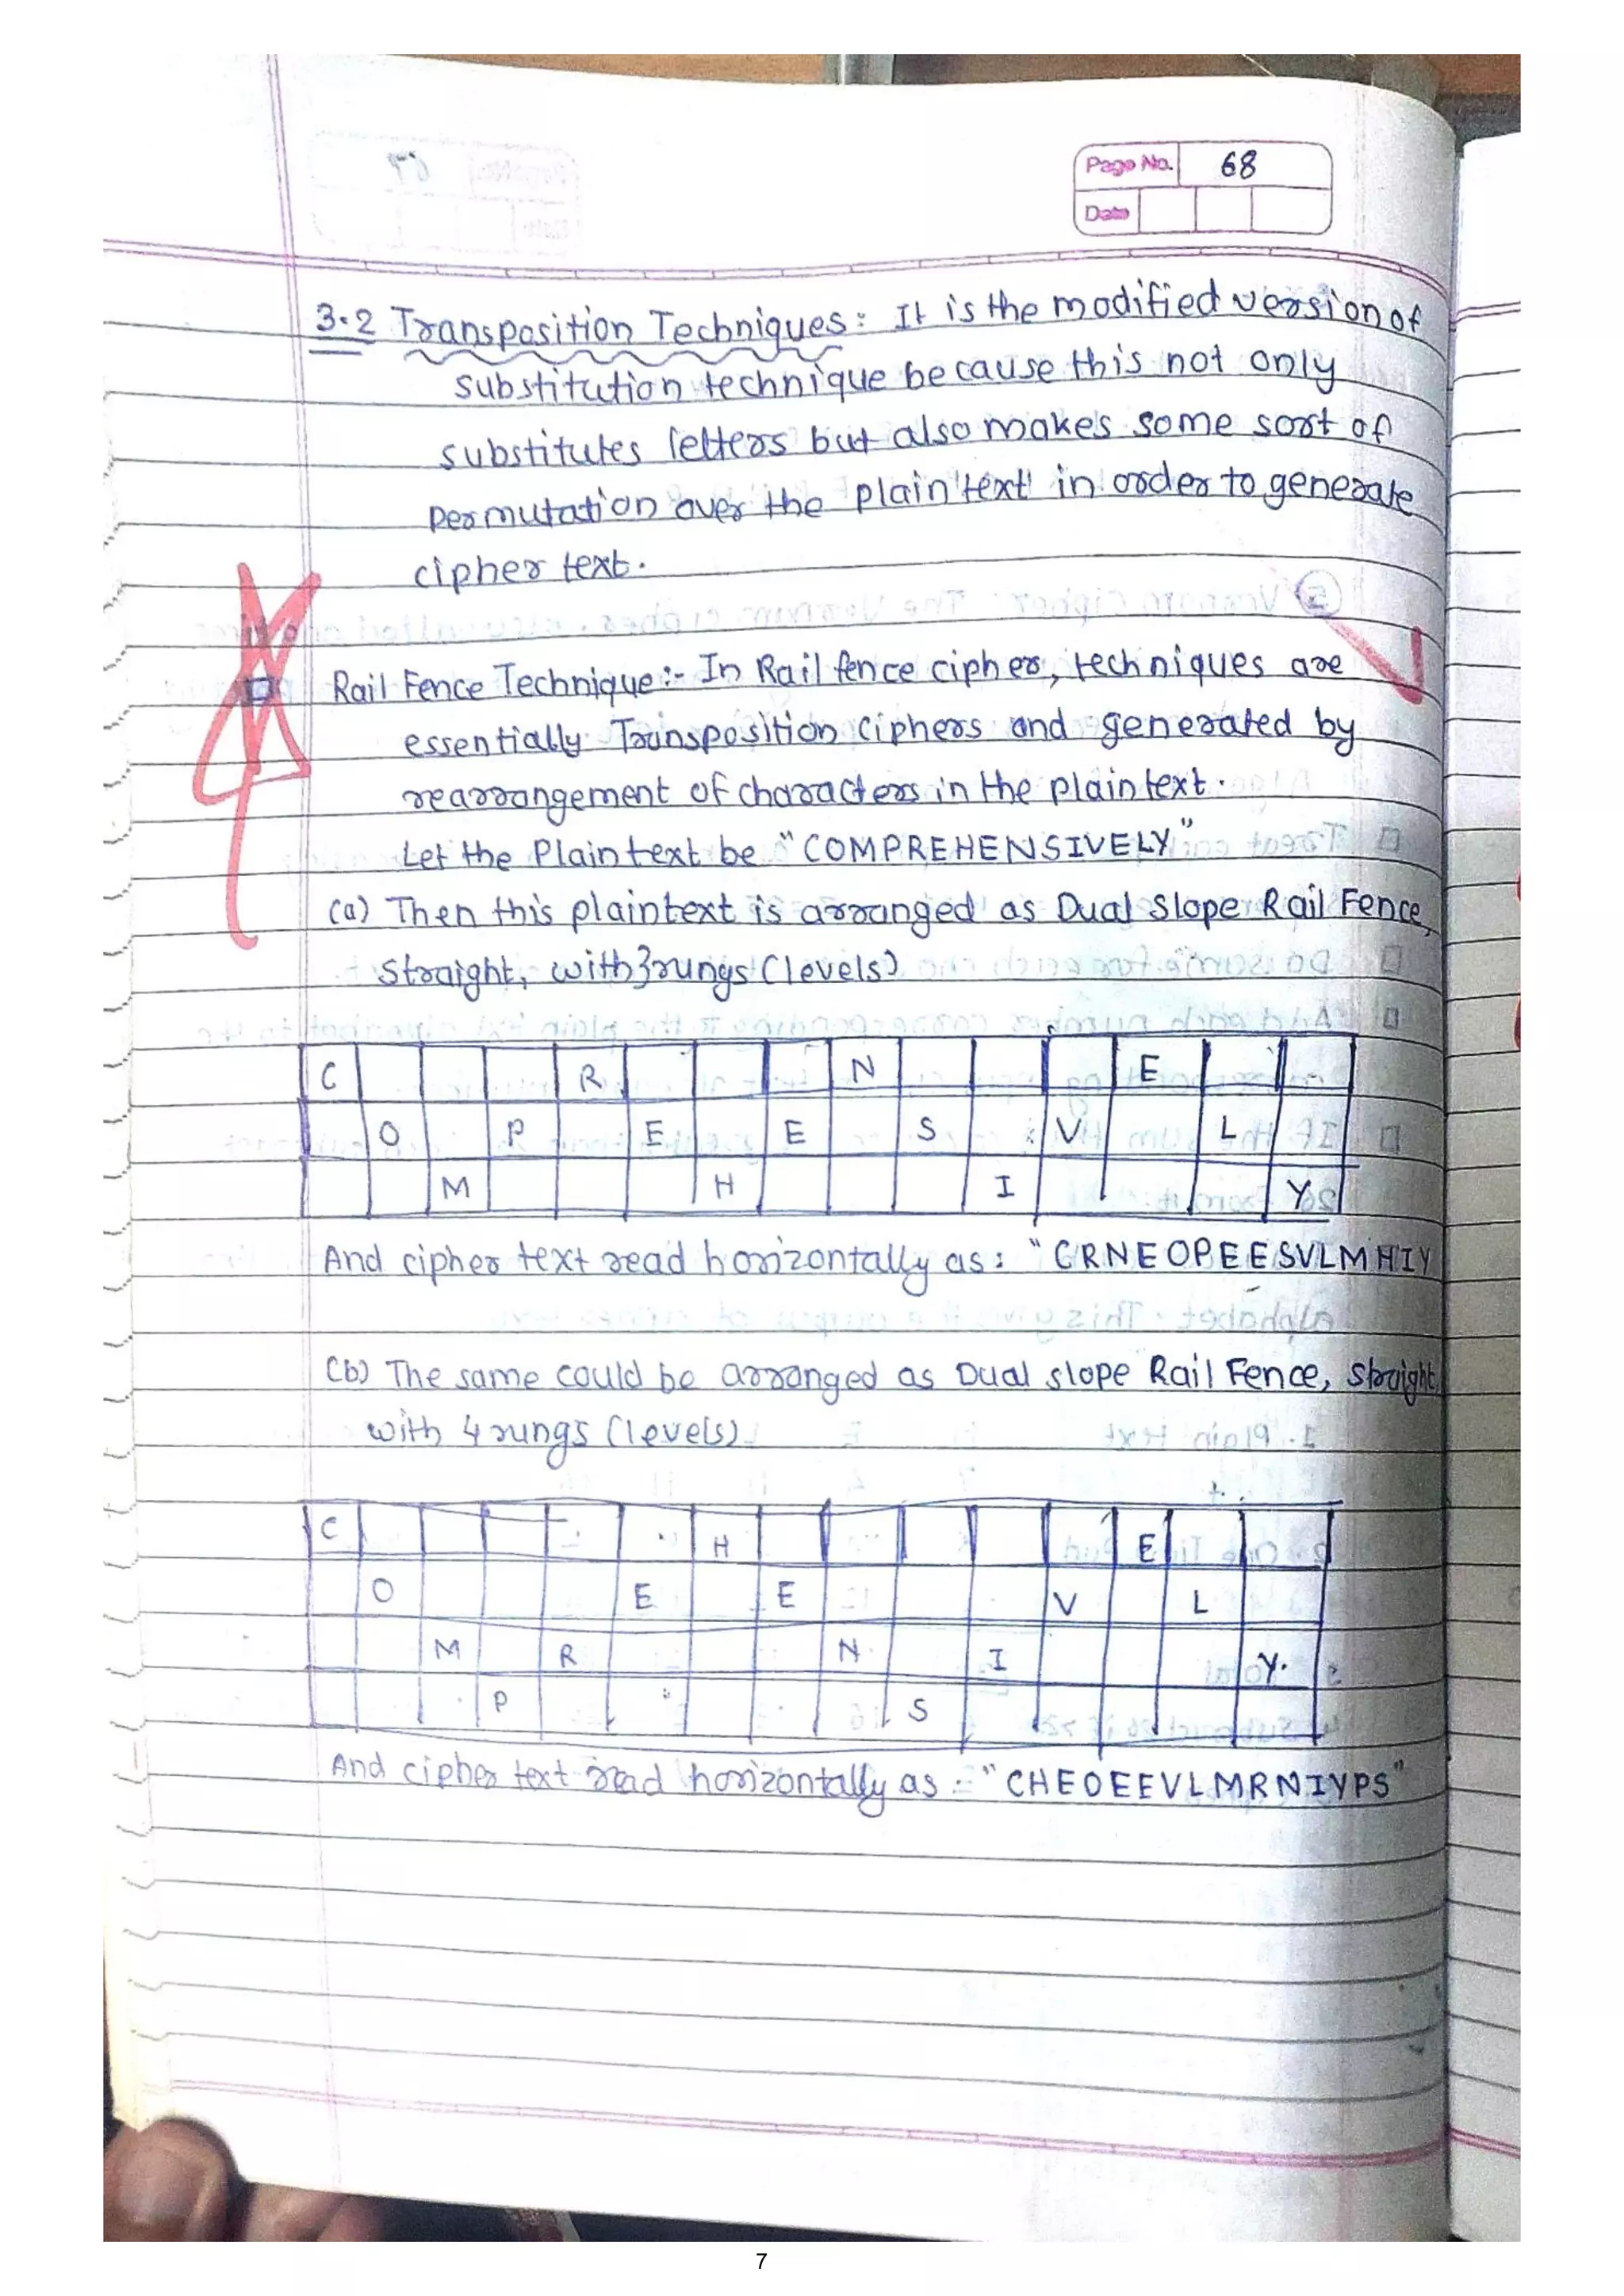 Page No. 68
Date
3.2 Transposition Techniques: It is the modified version of
substitution technique because this not only
substitutes letters but also makes some sort of
permutation over the plain text in order to generate
cipher text.
Rail Fence Technique:- In Rail fence cipher, techniques are
essentially Transposition Ciphers and generated by
rearrangement of characters in the plain text.
Let the Plaintext be "COMPREHENSIVELY"
(a) Then this plaintext is arranged as Dual Slope Rail Fence,
straight, with 3 rungs (levels)
C R N E
O P E E S V L
M H I Y
And cipher text read horizontally as: "CRNEOPEESVLMHIY
(b) The same could be arranged as Dual slope Rail Fence, straight
with 4 rungs (levels)
C H E
O E E V L
M R N I Y.
P S
And cipher text read horizontally as :- "CHEOEEVLMRNIYPS"
7